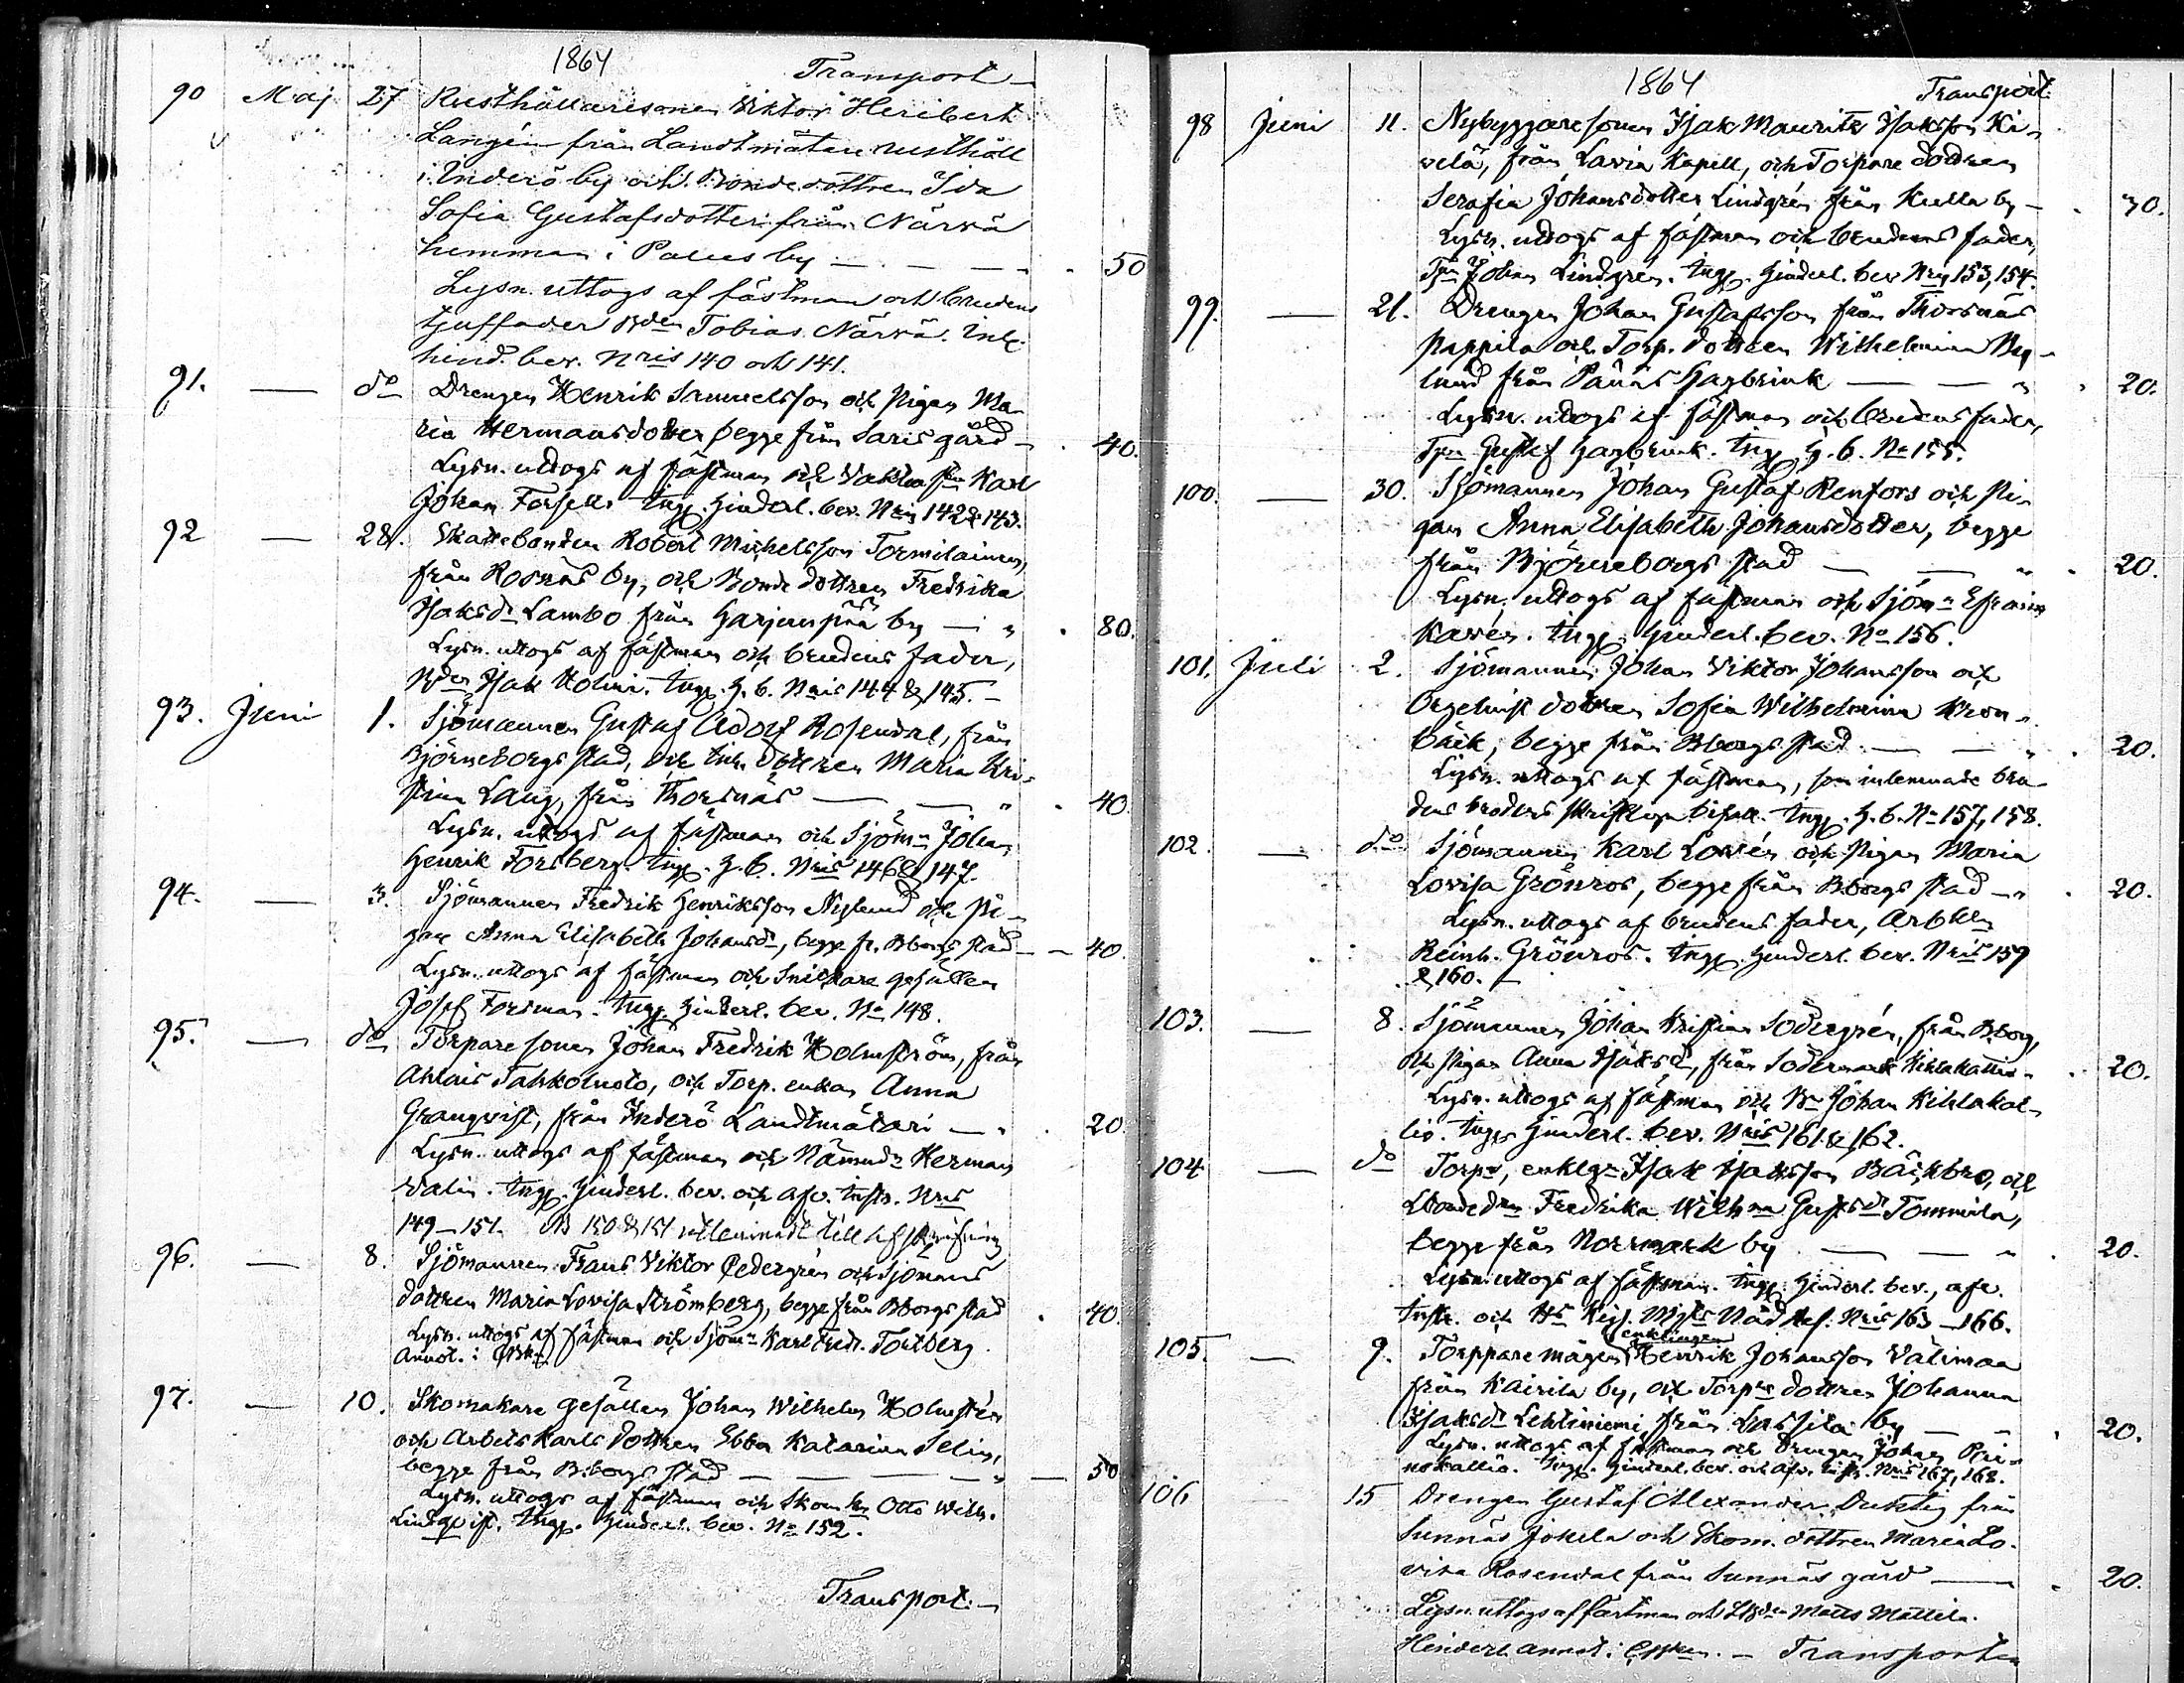 1864 Transport
90 Maj 27 Rusthållaresonen Viktor Heribert
Langén från Landtmätare rusthåll
i Inderö by och Bondedottren Ida
Sofia Gustafsdotter från Närvä
hemman i Palus by — — — 50
Lysn. uttogs af fästman och brudens
styffader Bden Tobias Närvä. Inl.
hind. bev. Nris 140 och 141.
91. — do Drengen Henrik Samuelsson och Pigan Ma-
ria Hermansdotter begge från Saris gård — 40.
Lysn. uttogs af fästman och Karl
Johan Forsell. Ingg. Hinderl. bev. Nris 142 & 143.
92 — 28. Skattebonden Robert Michelsson Tormilainen,
från Rosnäs by, och Bonde dottren Fredrika
Isaksdr Lambo från Harjunpää by — „ 80.
Lysn. uttogs af fästman och brudens fader,
Bden Isak Holmi. Ingg. H. b. Nris 144 & 145. —
93. Juni 1. Sjömannen Gustaf Adolf Rosendal, från
Björneborgs stad, och dottren Maria Kri-
stina Lang, från Thorsnäs — — „ 40.
Lysn. uttogs af fästman och Sjömn Johan
Henrik Forsberg. Ingg. H. b. Nris 146 & 147.
94. — 3. Sjömannen Fredrik Henriksson Nylund och Pi-
gan Anna Elisabeth Johansdr, begge fr. Bborgs stad — 40.
Lysn. uttogs af fästman och Snickare gesällen
Josef Forsman. Ingg. Hinderl. bev. No 148.
95. — do Torpare sonen Johan Fredrik Holmström, från
Ahlais Tahkoluoto, och Torp. enkan Anna
Granqvist, från Inderö Landtmätari — „ 20.
Lysn. uttogs af fästman och Nämndn Herman
Valin. Ingg. Hinderl. bev. och afv. instr. Nris
149–151. NB 150 & 151 utlemnade till afskrifning
96. — 8. Sjömannen Frans Viktor Cedergrén och Sjömans
dottren Maria Lovisa Strömberg, begge från Bborgs stad 40.
Lysn. uttogs af fästman och Sjömn Karl Fredr. Fortberg.
Annot. i
97. — 10. Skomakare gesällen Johan Wilhelm Holmstén
och Arbetskarls dottren Ebba Katarina Selin,
begge från B.borgs stad — — — — „ — 50
Lysn. uttogs af fästman och Skom. Otto Wilh.
Lindqvist. Ingg. Hinderl. bev. No 152.
Transport. —
1864 Transport.
98 Juni 11. Nybyggaresonen Isak Mauritz Isaksson Ki-
velä, från Lavia Kapell, och Torpare dottren
Serafia Johansdotter Lindgrén från Kulla by — 30.
Lysn. uttogs af fästman och brudens fader,
Tpn Johan Lindgrén. Ingg. Hinderl. bev Nris 153, 154.
99. — 21. Drengen Johan Gustafsson från Thorsnäs
Pappila och Torp. dottren Wilhelmina Ny-
lund från Hagbrink — — „ 20.
Lysn. uttogs af fästman och brudens fader,
Tpn Gustaf Hagbrink. Ingg. H. b. No 155.
100. — 30. Sjömannen Johan Gustaf Renfors och Pi-
gan Anna Elisabeth Johansdotter, begge
från Björneborgs stad — — „ 20.
Lysn. uttogs af fästman och Sjömn Efraim
Kavén. Ingg. Hinderl. bev. No 156.
101. Juli 2. Sjömannen Johan Viktor Johansson och
Orgelnist dottren Sofia Wilhelmina Kron-
bäck, begge från Bborgs stad — — „ 20.
Lysn. uttogs af fästman, som inlemnade bru-
dens broders skriftliga bifall. Ingg. H. b. No 157, 158.
102. — do Sjömannen Karl Lovén och Pigan Maria
Lovisa Grönros, begge från Bborgs stad — „ 20.
Lysn. uttogs af brudens fader, Arbkln
Reinh. Grönros. Ingg. Hinderl. bev. Nris 159
& 160. —
103. — 8. Sjömannen Johan Kristian Södergrén, från Bborg,
och Pigan Anna Isaksdr, från Södermark Kihlakallio 20.
Lysn. uttogs af fästman och Bn Johan Kihlakal-
lio. Ingg. Hinderl. bev. Nris 161 & 162.
104 — do Torpn, enklgn Isak Isaksson Bäckbro, och
Bondedrn Fredrika Wilhna Gustsdr Tommila,
begge från Norrmark by — — „ 20.
Lysn. uttogs af fästman. Ingg. Hinderl. bev., afv.
instr. och Hs Kejs. Mjts Nåd. res. Nris 163–166.
105. — 9. Torppare mågen enklingen Henrik Johansson Välimaa
från Kairila by, och Torpns dottren Johanna
Isaksdr Lehtiniemi från Lassila by — „ 20.
Lysn. uttogs af fästman och drengen Johan
Ingg. Hinderl. bev. och afv. instr. Nris 167, 168.
106 15 Drengen Gustaf Alexander från
Sunnäs Jokela och Skom. dottren Maria Lo-
visa Rosendal från Sunnäs gård — 20.
Lysn. uttogs af fästman och Matts Mattila.
Hinderl. annot. i — Transport